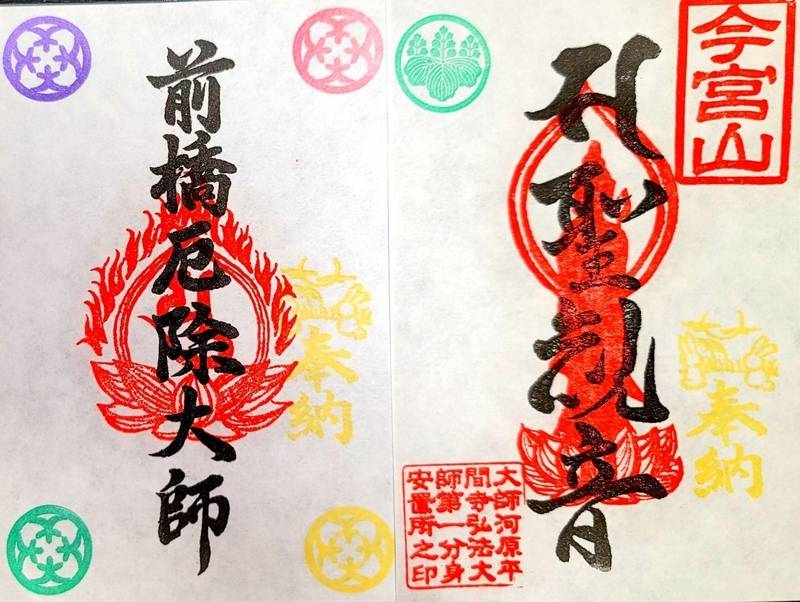 今宮山
聖観音
奉納
大師河原平
間寺弘法大
師第一分身
安置所之印
前橋厄除大師
奉納